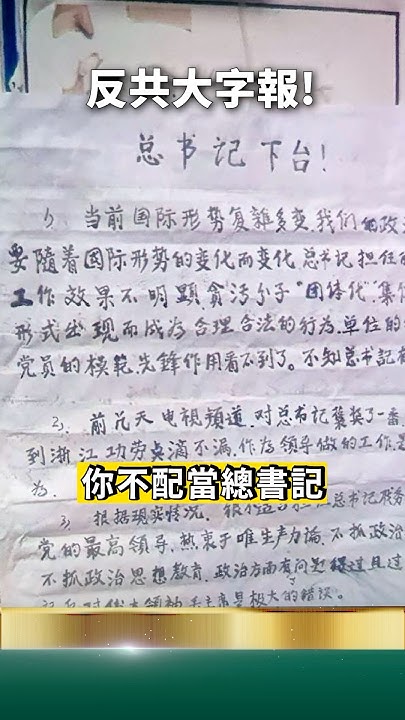 反共大字報!
总书记下台!
1、当前国际形势复雜多变,我们的政
要隨着国际形势的变化而变化总书记担任
工作效果不明顯贪污分子"团体化"集
形式出现而成为合理合法的行为,单位的
党员的模范,先鋒作用看不到了。不知总书記
2、前几天电視频道,对总书记褒奖了一番,
到浙江功劳点滴不漏,作為领导做的工作是
为.
你不配當總書記
3、根据現实情况,总书记
党的最高领导,热衷于唯生产力论,不抓政治
不抓政治思想教育,政治方面有问题
极大的错误。